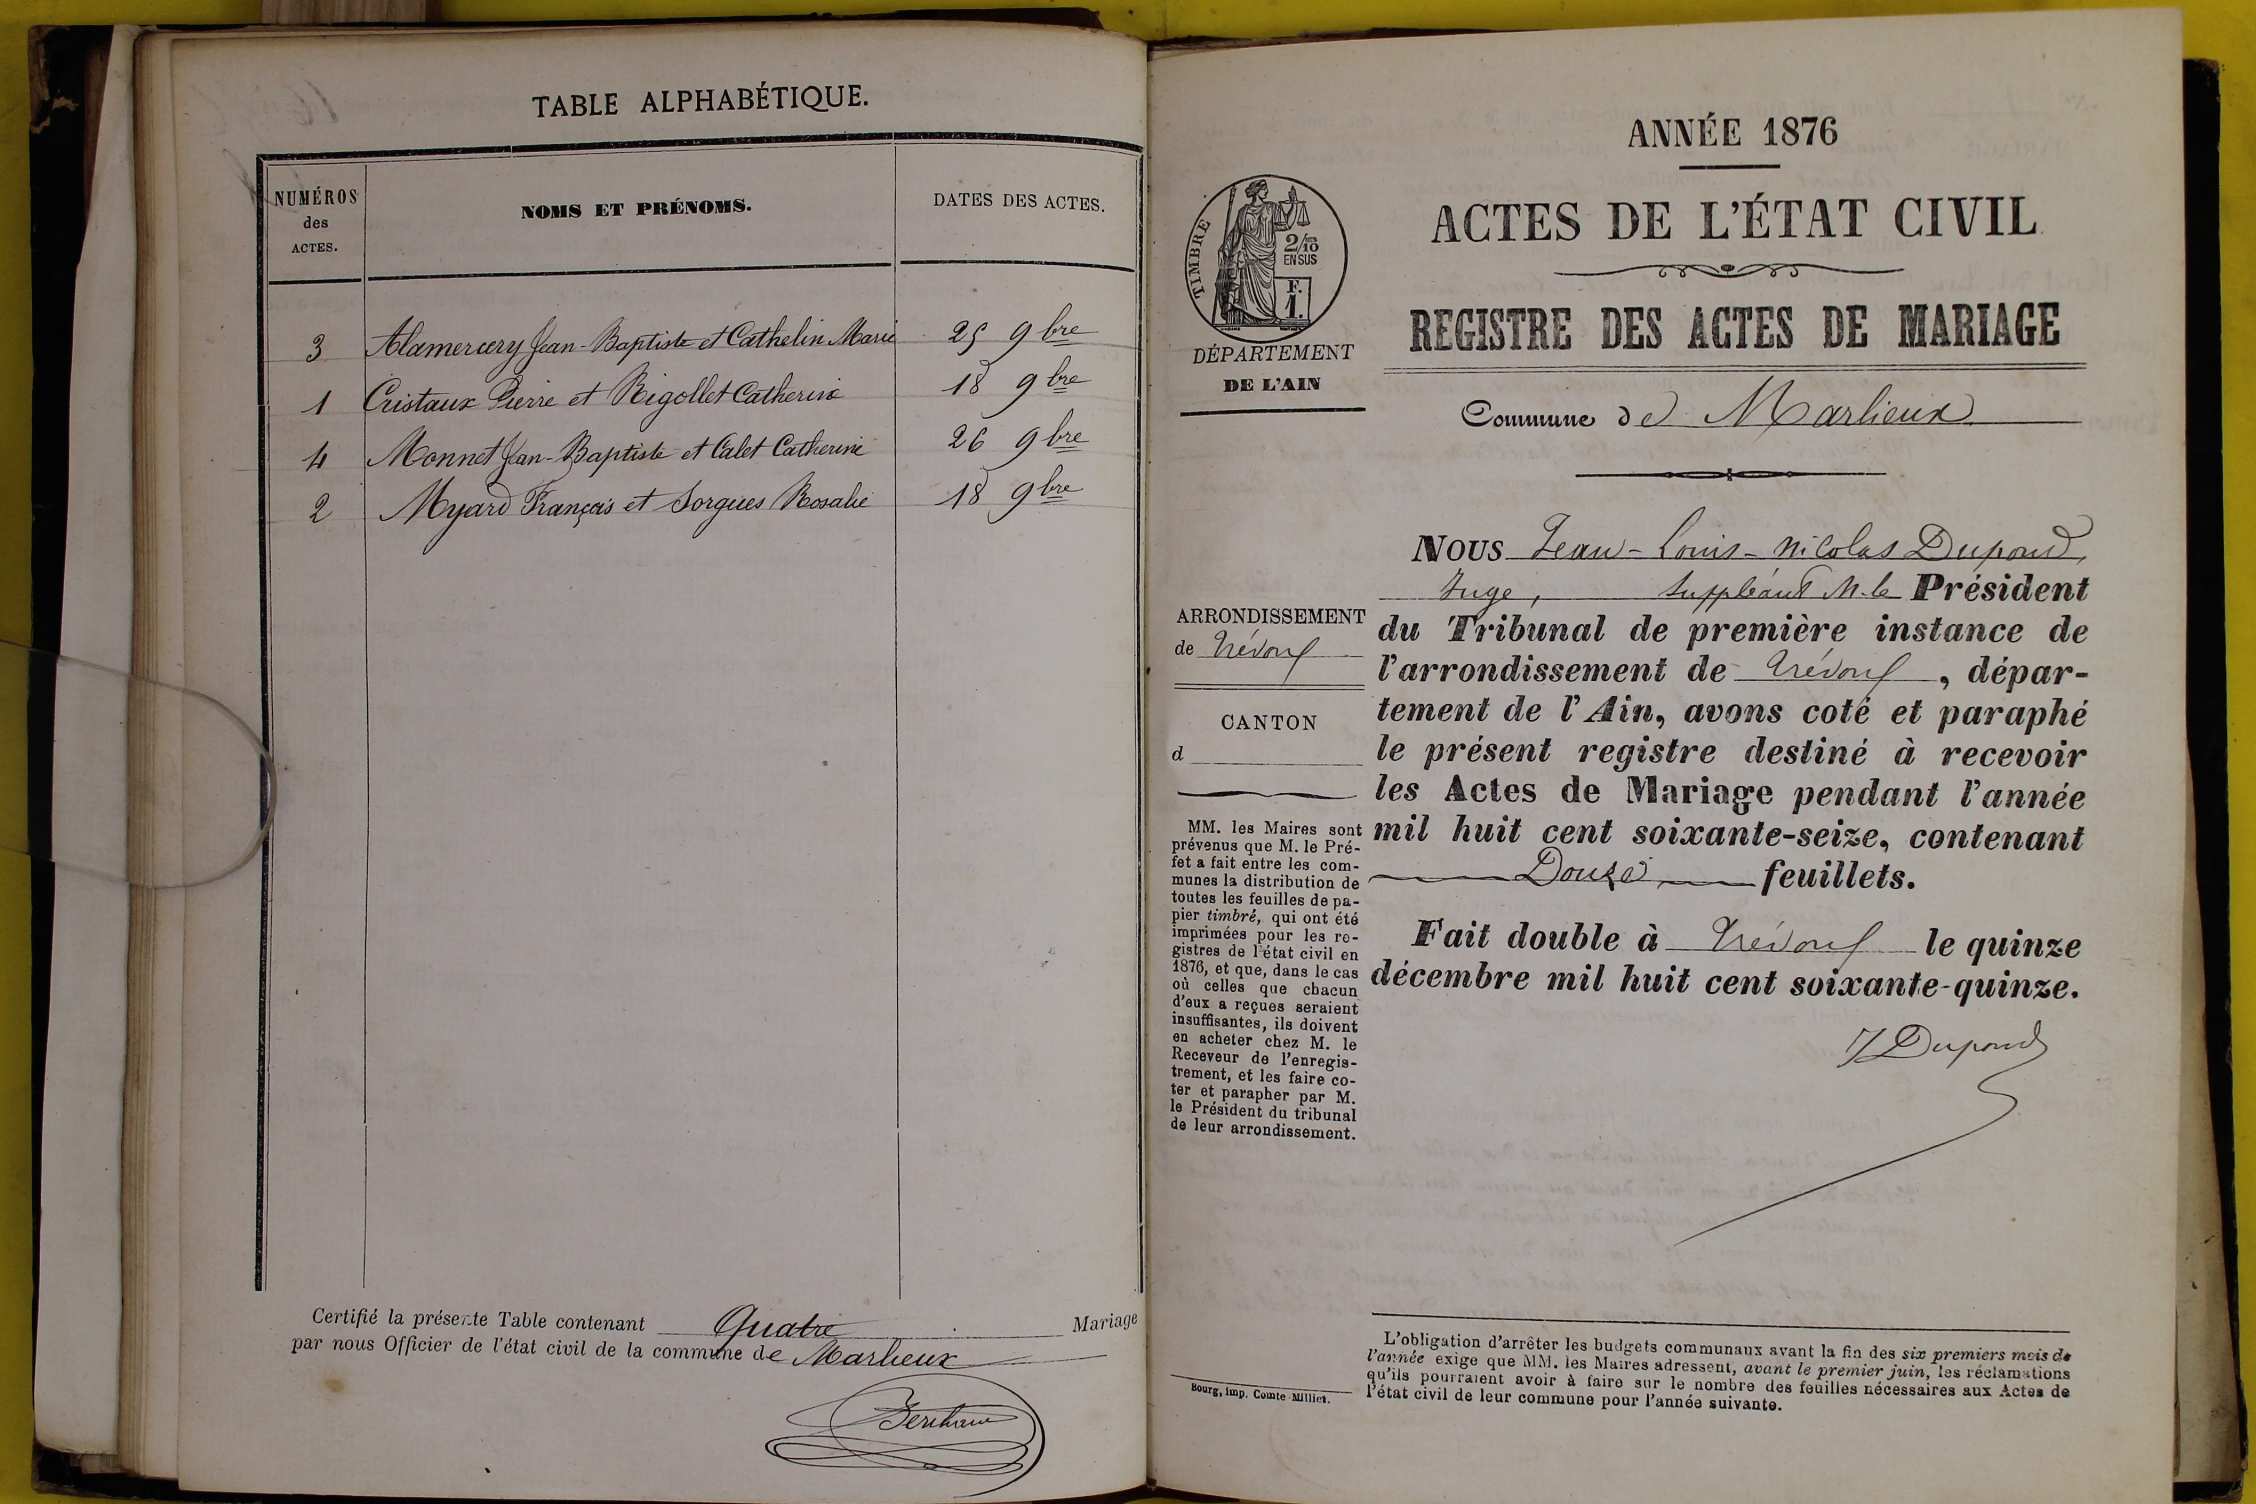 TABLE ALPHABÉTIQUE.
NUMÉROS
des
ACTES.
NOMS ET PRÉNOMS.
DATES DES ACTES.
3 Alamercery Jean-Baptiste et Cathelin Marie 25 9bre
1 Cristaux Pierre et Rigollet Catherine 18 9bre
4 Monnet Jean-Baptiste et Calet Catherine 26 9bre
2 Myard François et Sorgues Rosalie 18 9bre
Certifié la présente Table contenant Quatre Mariage
par nous Officier de l'état civil de la commune de Marlieux
ANNÉE 1876
ACTES DE L'ÉTAT CIVIL
REGISTRE DES ACTES DE MARIAGE
TIMBRE
2/10
EN SUS
F.
1.
DÉPARTEMENT
DE L'AIN
Commune de Marlieux
NOUS Jean-Louis-Nicolas Dupond,
Juge, suppléant M. le Président
du Tribunal de première instance de
l'arrondissement de Trévoux, dépar-
tement de l'Ain, avons coté et paraphé
le présent registre destiné à recevoir
les Actes de Mariage pendant l'année
mil huit cent soixante-seize, contenant
Douze feuillets.
Fait double à Trévoux le quinze
décembre mil huit cent soixante-quinze.
J Dupond
ARRONDISSEMENT
de Trévoux
CANTON
d
MM. les Maires sont
prévenus que M. le Pré-
fet a fait entre les com-
munes la distribution de
toutes les feuilles de pa-
pier timbré, qui ont été
imprimées pour les re-
gistres de l'état civil en
1876, et que, dans le cas
où celles que chacun
d'eux a reçues seraient
insuffisantes, ils doivent
en acheter chez M. le
Receveur de l'enregis-
trement, et les faire co-
ter et parapher par M.
le Président du tribunal
de leur arrondissement.
Bourg, imp. Comte-Milliet.
L'obligation d'arrêter les budgets communaux avant la fin des six premiers mois de
l'année exige que MM. les Maires adressent, avant le premier juin, les réclamations
qu'ils pourraient avoir à faire sur le nombre des feuilles nécessaires aux Actes de
l'état civil de leur commune pour l'année suivante.